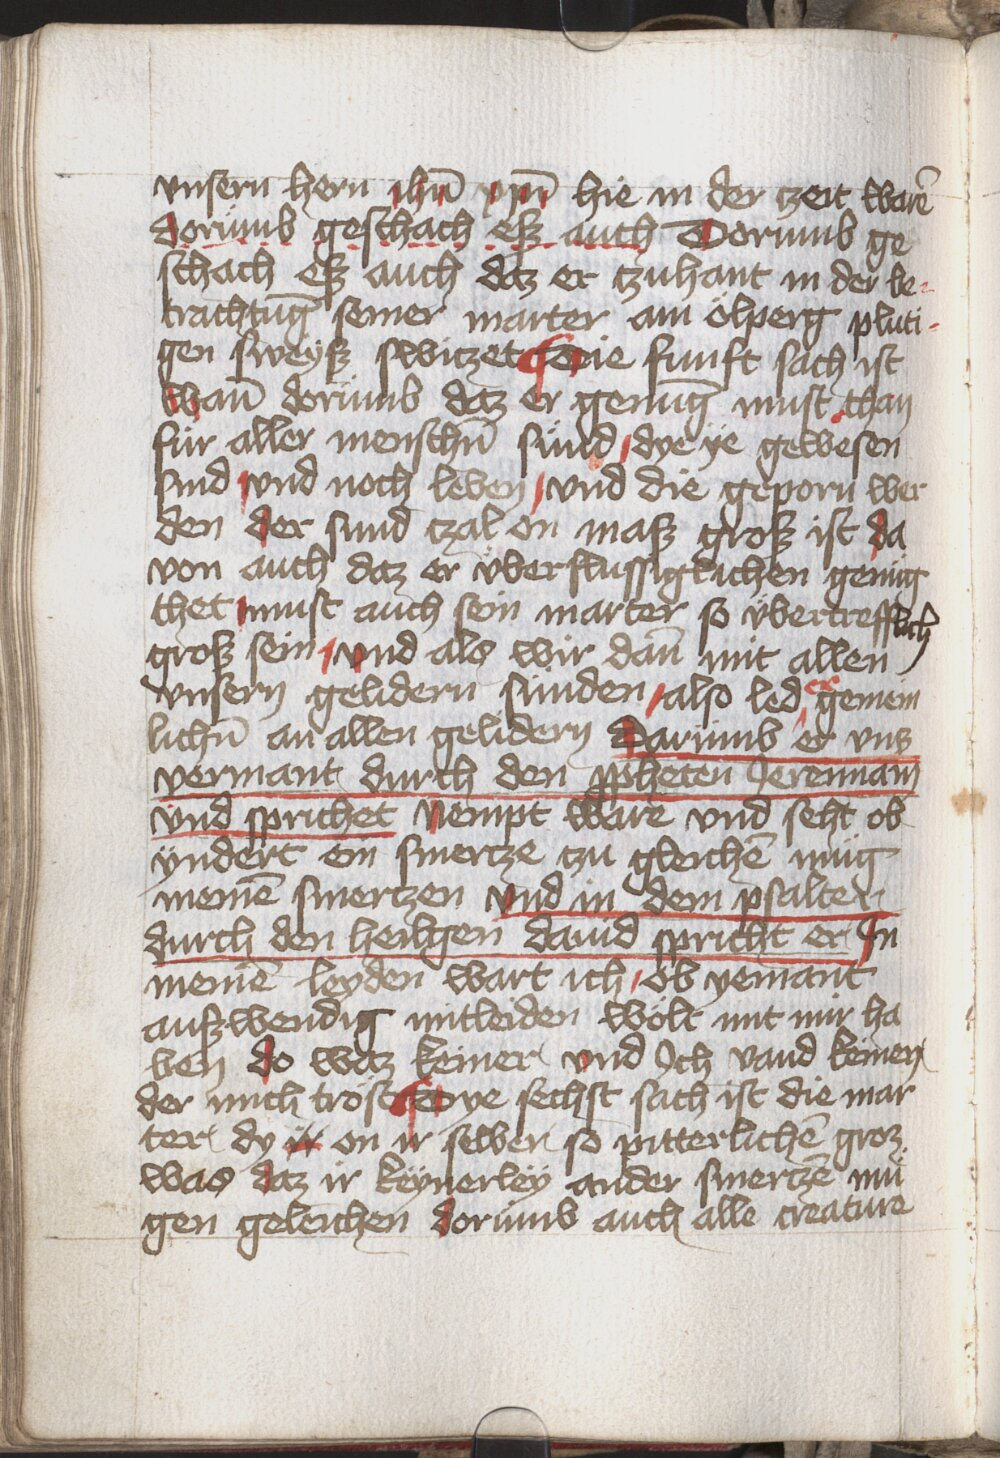 vnsern hern ihū xpū hie in der tzeit warē
dorümb geschach eß auch Dorumb ge
schach eß auch daz er tzuhant in der be-
trachtūg seiner marter am ölperg pluti-
gen sweyß switzet Die funft sach ist
wañ dorümb daz er genūg must than
für aller menschn̄ sünd dye ye gewesen
sind vnd noch leben vnd die geporn wer
den der sund tzal on maß groß ist da
von auch daz er vberflussiglichen genüg
thet must auch sein marter so vbertrefflich
groß sein vnd als wir dañ mit allen
vnsern gelidern sünden also led er gemein
lichn̄ an allen gelidern Darümb er vns
vermant durch den ppheten Jeremiam
vnd sprichet Nempt ware vnd seht ob
yndert ein smertze tzu gleichē müg
meinē smertzen Vnd in dem psalter
durch den heiligen dauid spricht er In
meinē leyden wart ich ob yemant
außwendig mitleiden wölt mit mir ha
ben do waz keiner vnd Ich vand keinen
der mich tröst Dye sechst sach ist die mar
ter dy in on ir selber so pitterlichē groz
was daz ir keynerley ander smertzē mü
gen geleichen dorümb auch alle creature